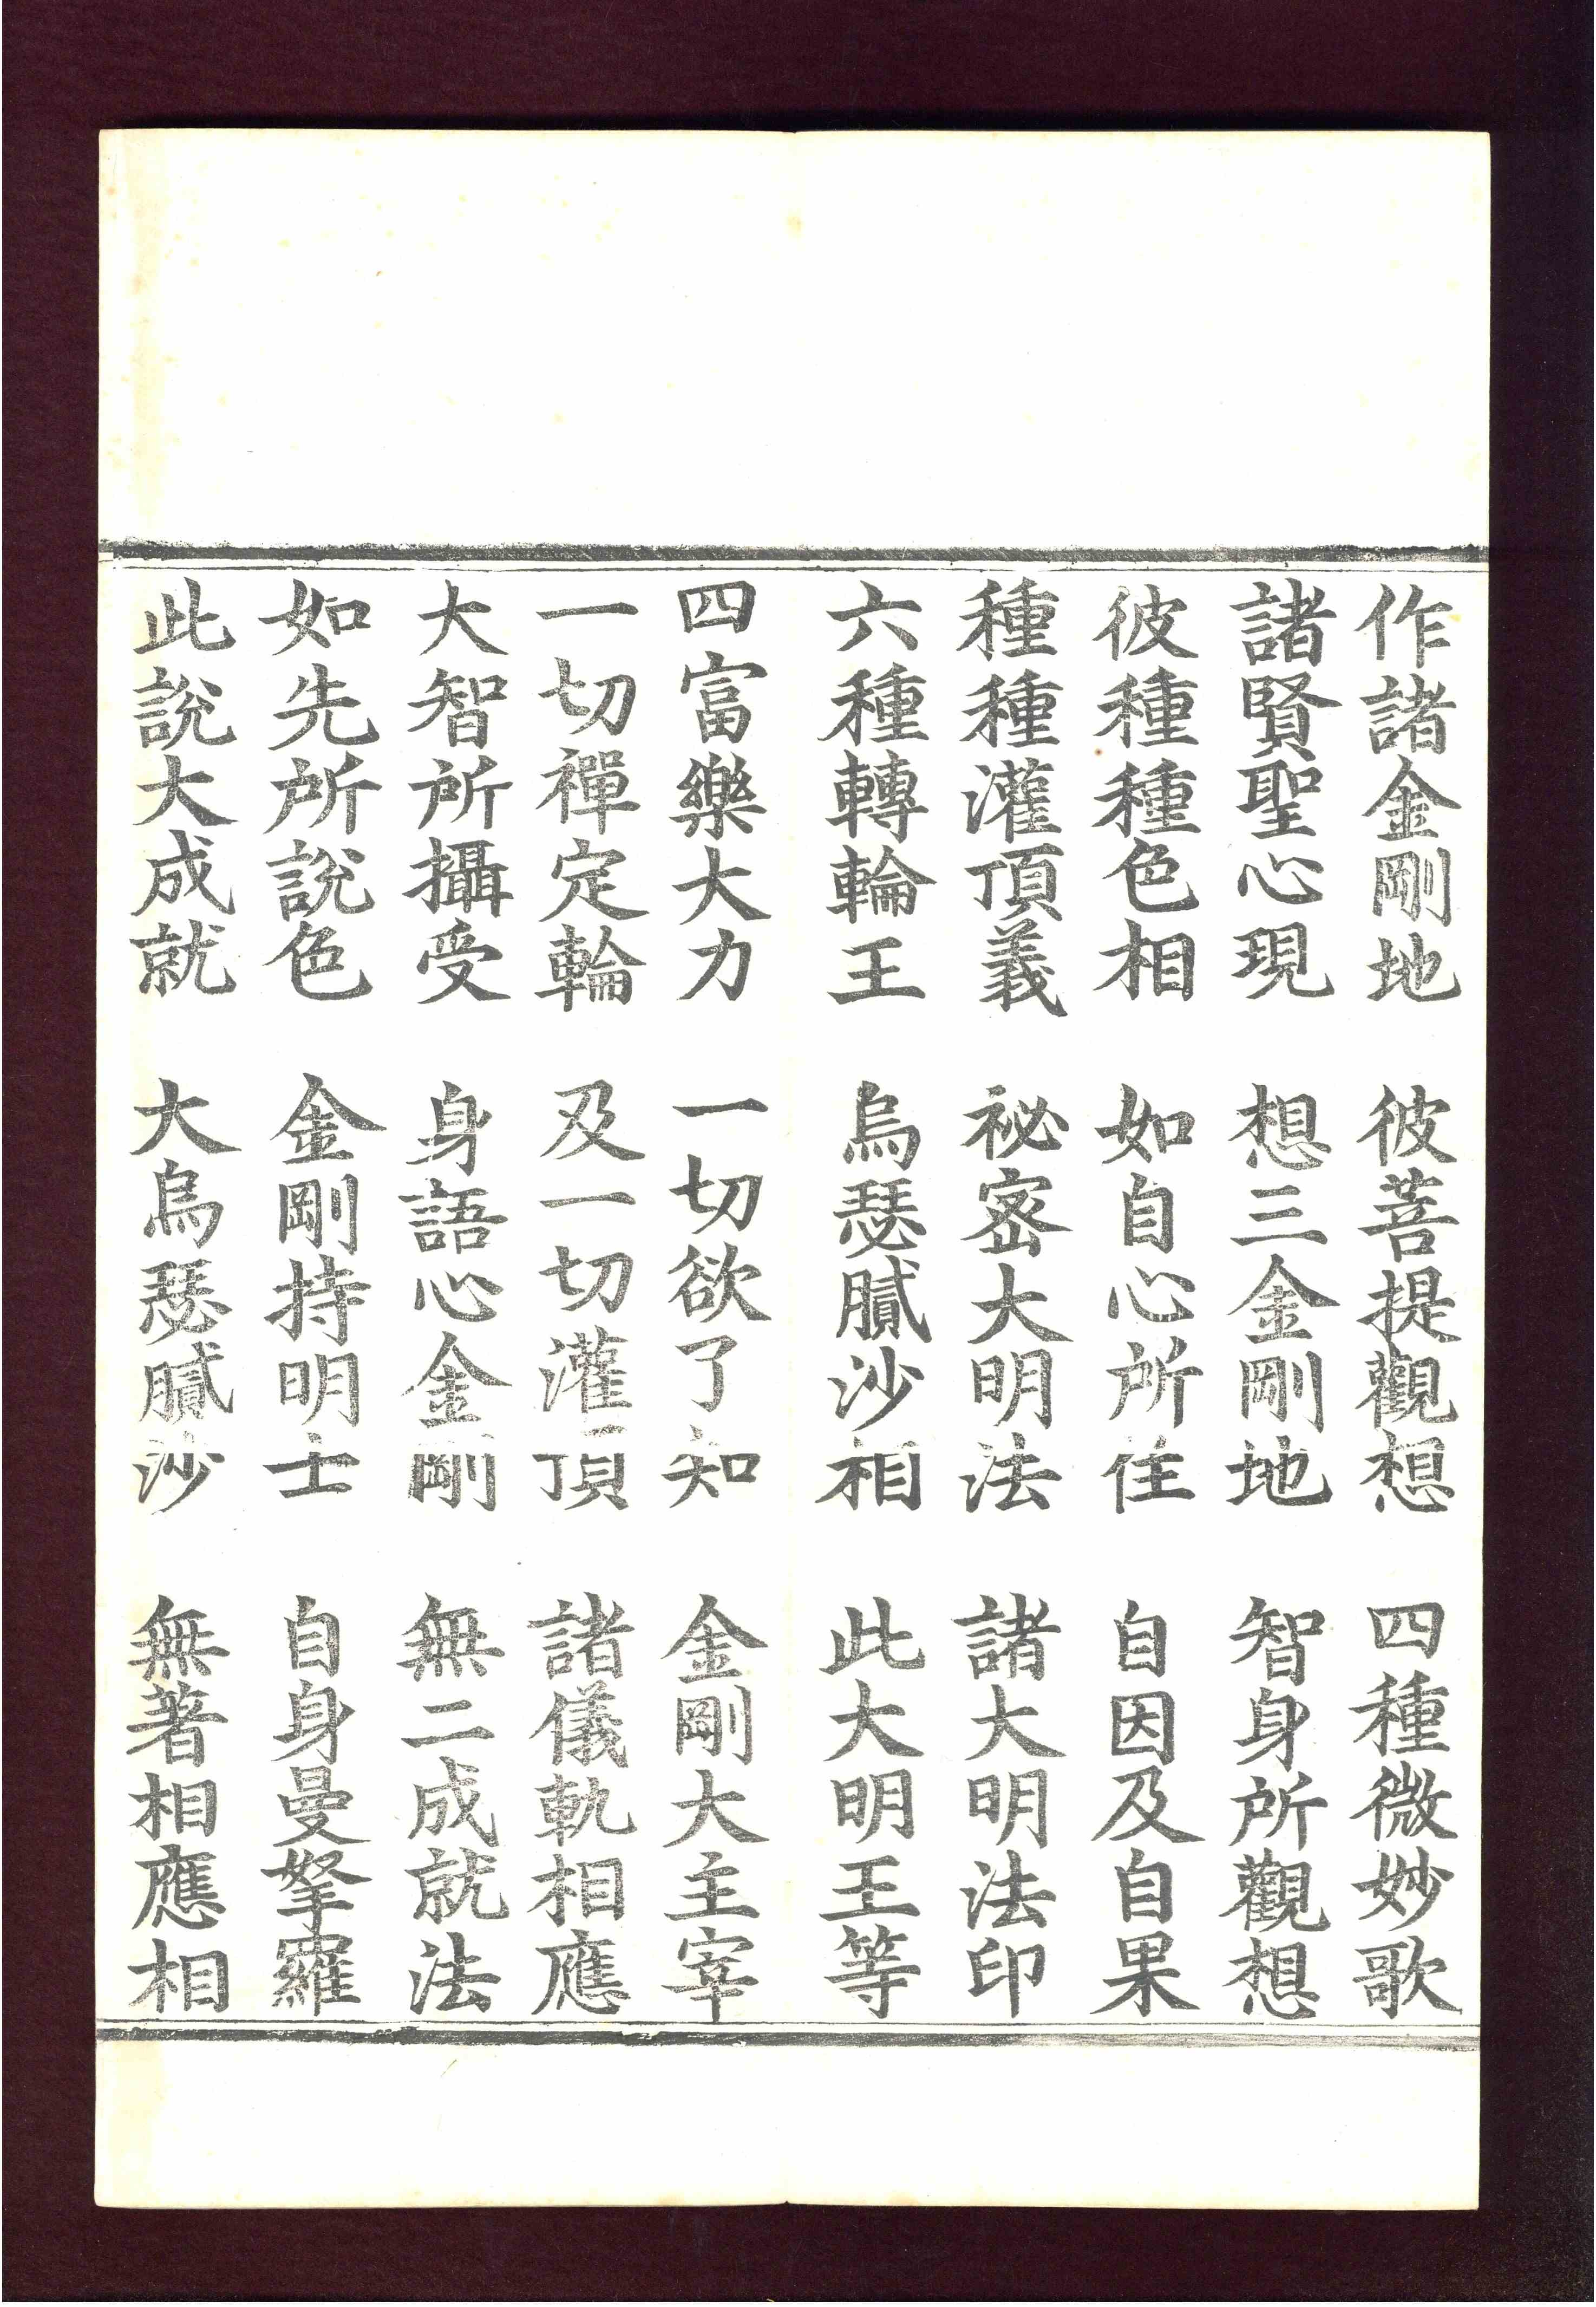 作諸金剛地　彼菩提觀想　四種微妙歌
諸賢聖心現　想三金剛地　智身所觀想
彼種種色相　如自心所住　自因及自果
種種灌頂義　祕密大明法　諸大明法印
六種轉輪王　烏瑟膩沙相　此大明王等
四富樂大力　一切欲了知　金剛大主宰
一切禪定輪　及一切灌頂　諸儀軌相應
大智所攝受　身語心金剛　無二成就法
如先所說色　金剛持明士　自身曼拏羅
此說大成就　大烏瑟膩沙　無著相應相